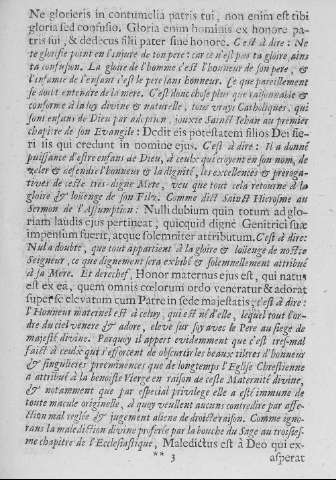 Ne glorieris in contumelia patris tui, non enim est tibi
gloria sed confusio. Gloria enim hominis ex honore pa-
tris sui, & dedecus filii pater sine honore. C'est à dire: Ne
te glorifie point en l'injure de ton pere: car ce n'est pas ta gloire, ains
ta confusion. La gloire de l'homme c'est l'honneur de son pere, &
l'infamie de l'enfant c'est le pere sans honneur. Ce que pareillement
se doibt entendre de la mere. C'est donc chose plus que raisonnable &
conforme à la loy divine & naturelle, tous vrays Catholiques, qui
sont enfans de Dieu par adoption, jouxte Sainct Jehan au premier
chapitre de son Evangile: Dedit eis potestatem filios Dei fie-
ri iis qui credunt in nomine ejus. C'est à dire: Il a donné
puissance d'estre enfans de Dieu, à ceulx qui croyent en son nom, de
zeler & defendre l'honneur & la dignité, les excellences & preroga-
tives de ceste tres-digne Mere, veu que tout cela retourne à la
gloire & loüenge de son Filz. Comme dict Sainct Hierosme au
Sermon de l'Assumption: Nulli dubium quin totum ad glo-
riam laudis ejus pertineat, quicquid digne Genitrici suæ
impensum fuerit, atque solemniter attributum. C'est à dire:
Nul a doubte, que tout appartient à la gloire & loüenge de nostre
Seigneur, ce que dignement sera exhibé & solemnellement attribué
à sa Mere. Et derechef, Honor maternus ejus est, qui natus
est ex ea, quem omnis cœlorum ordo veneratur & adorat
super se elevatum cum Patre in sede majestatis; c'est à dire:
l'Honneur maternel est à celuy, qui est né d'elle, lequel tout l'or-
dre du ciel venere & adore, elevé sur soy avec le Pere au siege de
majesté divine. Parquoy il appert evidemment que c'est tres-mal
faict à ceulx qui s'efforcent de obscurcir les beaux tiltres d'honneur
& singulieres preeminences que de longtemps l'Eglise Chrestienne
a attribué à la benoiste Vierge en raison de ceste Maternité divine,
& notamment que par especial privilege elle a esté immune de
toute macule originelle, à quoy veullent aucuns contredire par affe-
ction mal reglée & jugement aliene de droicte raison. Comme igno-
rans la malediction divine proferée par la bouche du Sage au troisies-
me chapitre de l'Ecclesiastique, Maledictus est à Deo qui ex-
** 3 asperat